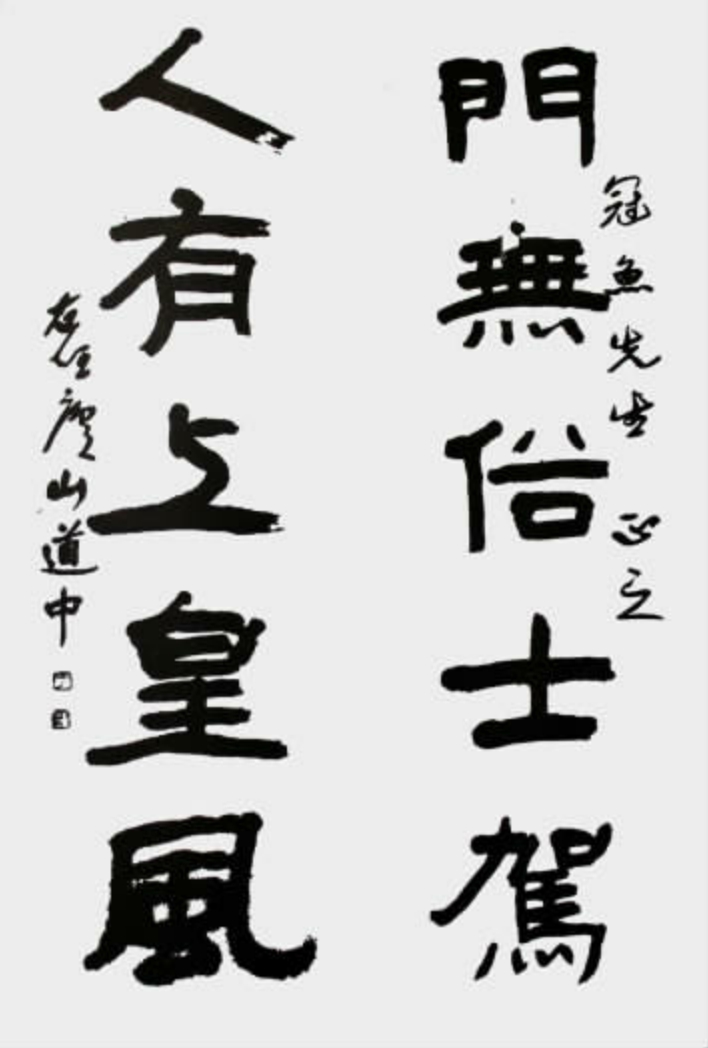 冠魚先生 正之
門無俗士駕
人有上皇風
在任廬山道中